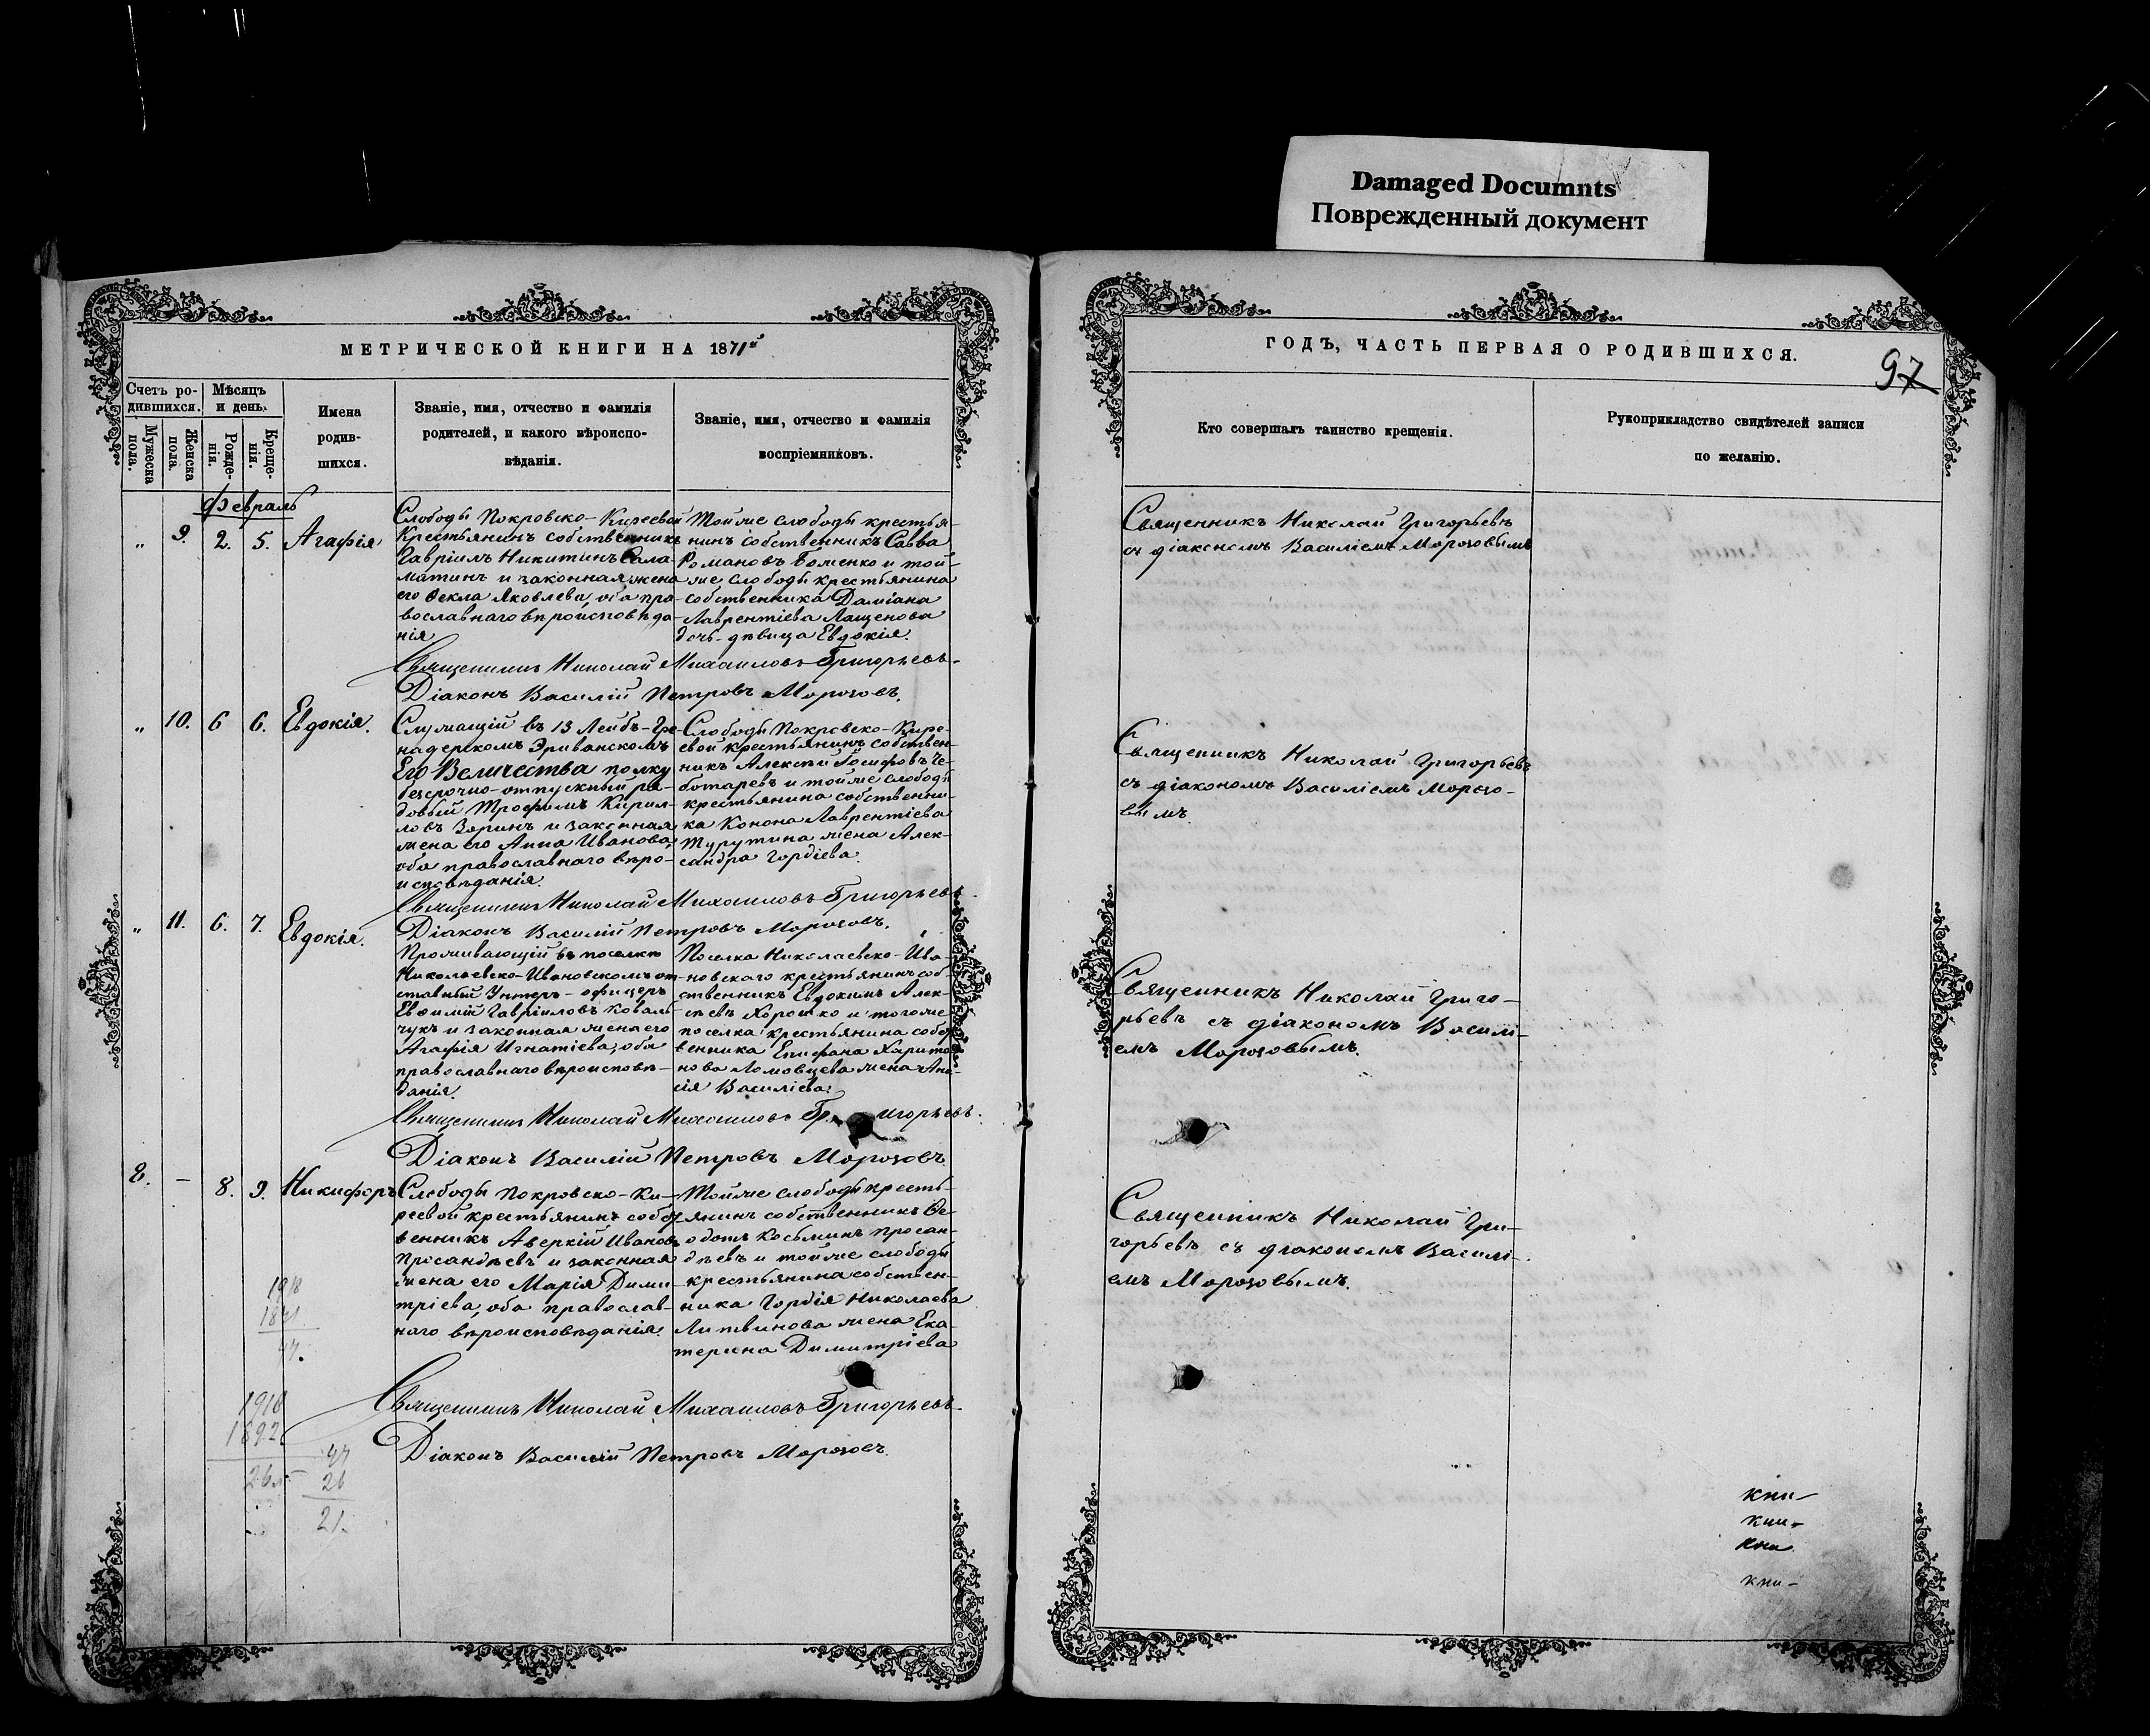 Damaged Documnts
Поврежденный документ
МЕТРИЧЕСКОЙ КНИГИ НА 1871й
Счетъ ро-
дившихся.
Мѣсяцъ
и день.
Мужеска
пола.
Женска
пола.
Рожде-
нія.
Креще-
нія.
Имена
родив-
шихся.
Званіе, имя, отчество и фамилія
родителей, и какого вѣроиспо-
вѣданія.
Званіе, имя, отчество и фамилія
воспріемниковъ.
Февраль
„ 9. 2. 5. Агафія
Слободы Покровско-Киреевой
Крестьянинъ собственникъ
Гавріилъ Никитинъ Сала-
матинъ и законная жена
его Ѳекла Яковлева, оба пра-
вославнаго вѣроисповѣда-
нія
Тойже слободы крестья-
нинъ собственникъ Савва
Романовъ Боженко и той-
же слободы крестьянина
собственника Даміана
Лаврентіева Лащенова
дочь-дѣвица Евдокія.
Священникъ Николай Михаиловъ Григорьевъ.
Діаконъ Василій Петровъ Морозовъ.
„ 10. 6 6. Евдокія.
Служащій въ 13 Лейбъ-Гре-
надерскомъ Эриванскомъ
Его Величества полку
безсрочно-отпускный ря-
довый Трофимъ Кирил-
ловъ Зоринъ и законная
жена его Анна Иванова,
оба православнаго вѣро-
исповѣданія.
Слободы Покровско-Кире-
евой крестьянинъ собствен-
никъ Алексѣй Іосифовъ Че-
ботаревъ и тойже слободы
крестьянина собственни-
ка Конона Лаврентіева
Турутина жена Алек-
сандра Гордіева.
Священникъ Николай Михаиловъ Григорьевъ
Діаконъ Василій Петровъ Морозовъ.
„ 11. 6. 7. Евдокія.
Проживающій въ поселкѣ
Николаевско-Ивановскомъ от-
ставный Унтеръ-офицеръ
Евфимій Гавріиловъ Коваль-
чукъ и законная жена его
Агафія Игнатіева, оба
православнаго вѣроисповѣ-
данія.
Поселка Николаевско-Ива-
новскаго крестьянинъ соб-
ственникъ Евдокимъ Алек-
сѣевъ Хорошко и тогоже
поселка крестьянина собст-
венника Епифана Харито-
нова Ломовцева жена Ана-
сія Василіева.
Священникъ Николай Михаиловъ Григорьевъ.
Діаконъ Василій Петровъ Морозовъ
8. – 8. 9. Никифоръ
Слободы Покровско-Ки-
реевой крестьянинъ собст-
венникъ Аверкій Ивановъ
Просандѣевъ и законная
жена его Марія Дими-
тріева, оба православ-
наго вѣроисповѣданія.
Тойже слободы кресть-
янинъ собственникъ Ѳе-
одотъ Косьминъ Просан-
дѣевъ и тойже слободы
крестьянина собствен-
ника Гордія Николаева
Литвинова жена Ека-
терина Димитріева
Священникъ Николай Михаиловъ Григорьевъ.
Діаконъ Василій Петровъ Морозовъ.
1918
1871
47.
1918
1892
26
47
26
21.
ГОДЪ, ЧАСТЬ ПЕРВАЯ О РОДИВШИХСЯ.
97
Кто совершалъ таинство крещенія.
Рукоприкладство свидѣтелей записи
по желанію.
Священникъ Николай Григорьевъ
съ діакономъ Василіемъ Морозовымъ
Священникъ Николай Григорьевъ
съ діакономъ Василіемъ Морозо-
вымъ.
Священникъ Николай Григо-
рьевъ съ діакономъ Василі-
емъ Морозовымъ.
Священникъ Николай Гри-
горьевъ съ діакономъ Василі-
емъ Морозовымъ.
кни-
кни-
кни
кни-